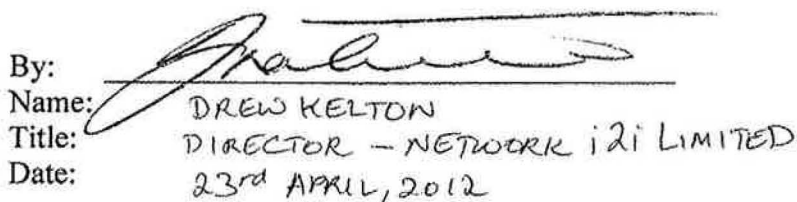 By:
Name: DREW KELTON
Title: DIRECTOR - NETWORK i2i LIMITED
Date: 23rd APRIL, 2012